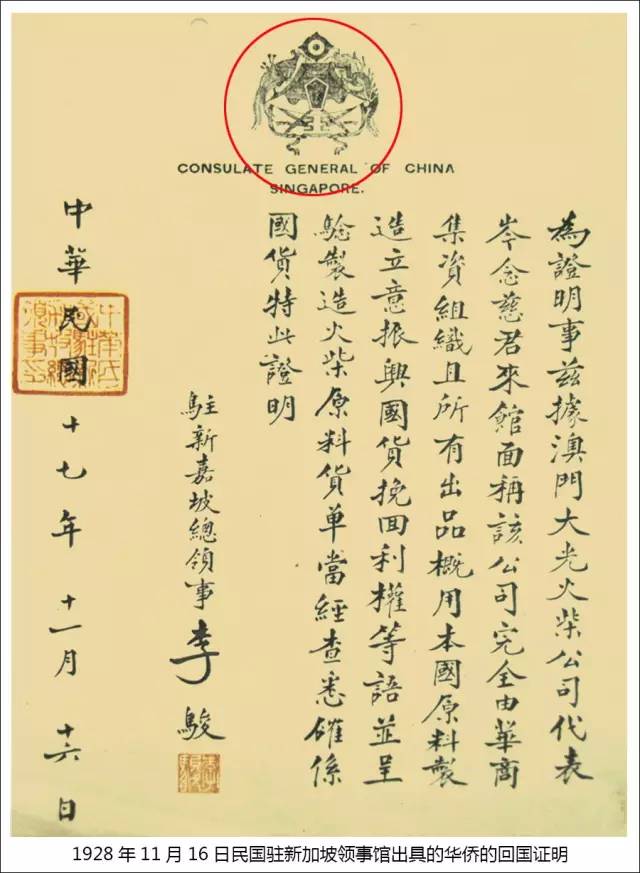 CONSULATE GENERAL OF CHINA
SINGAPORE.
為證明事茲據澳門大光火柴公司代表
岑念慈君來館面稱該公司完全由華商
集資組織且所有出品概用本國原料製
造立意振興國貨挽回利權等語並呈
驗製造火柴原料貨单當經查悉確係
國貨特此證明
駐新嘉坡總領事李駿
中華民國十七年十一月十六日
1928年11月16日民国驻新加坡领事馆出具的华侨的回国证明